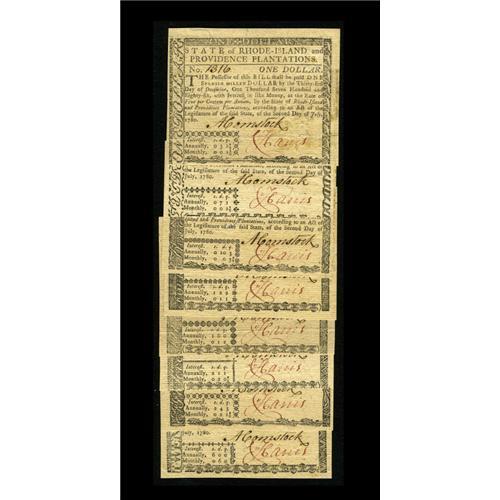 STATE of RHODE-ISLAND and
PROVIDENCE PLANTATIONS.
No. 1316 ONE DOLLAR.
THE Possessor of this BILL shall be paid ONE
SPANISH MILLED DOLLAR by the Thirty-first
Day of December, One Thousand Seven Hundred and
Eighty-six, with Interest in like Money, at the Rate of
Five per Centum per Annum, by the State of Rhode-Island
and Providence Plantations, according to an Act of the
Legislature of the said State, of the Second Day of July,
1780.
A Comstock
Interest. s. d. q.
Annually,
Monthly,
C Harris
the Legislature of the said State, of the Second Day of
July, 1780.
A Comstock
Interest. s. d. q.
Annually,
Monthly,
C Harris
and Providence Plantations, according to an Act of
the Legislature of the said State, of the Second Day of
July, 1780.
A Comstock
Interest. s. d. q.
Annually,
Monthly,
C Harris
Interest. s. d. q.
Annually,
Monthly,
C Harris
Interest. s. d. q.
Annually,
Monthly,
C Harris
Interest. s. d. q.
Annually,
Monthly,
C Harris
Interest. s. d. q.
Annually,
Monthly,
C Harris
July, 1780.
A Comstock
Interest. s. d. q.
Annually,
Monthly,
C Harris